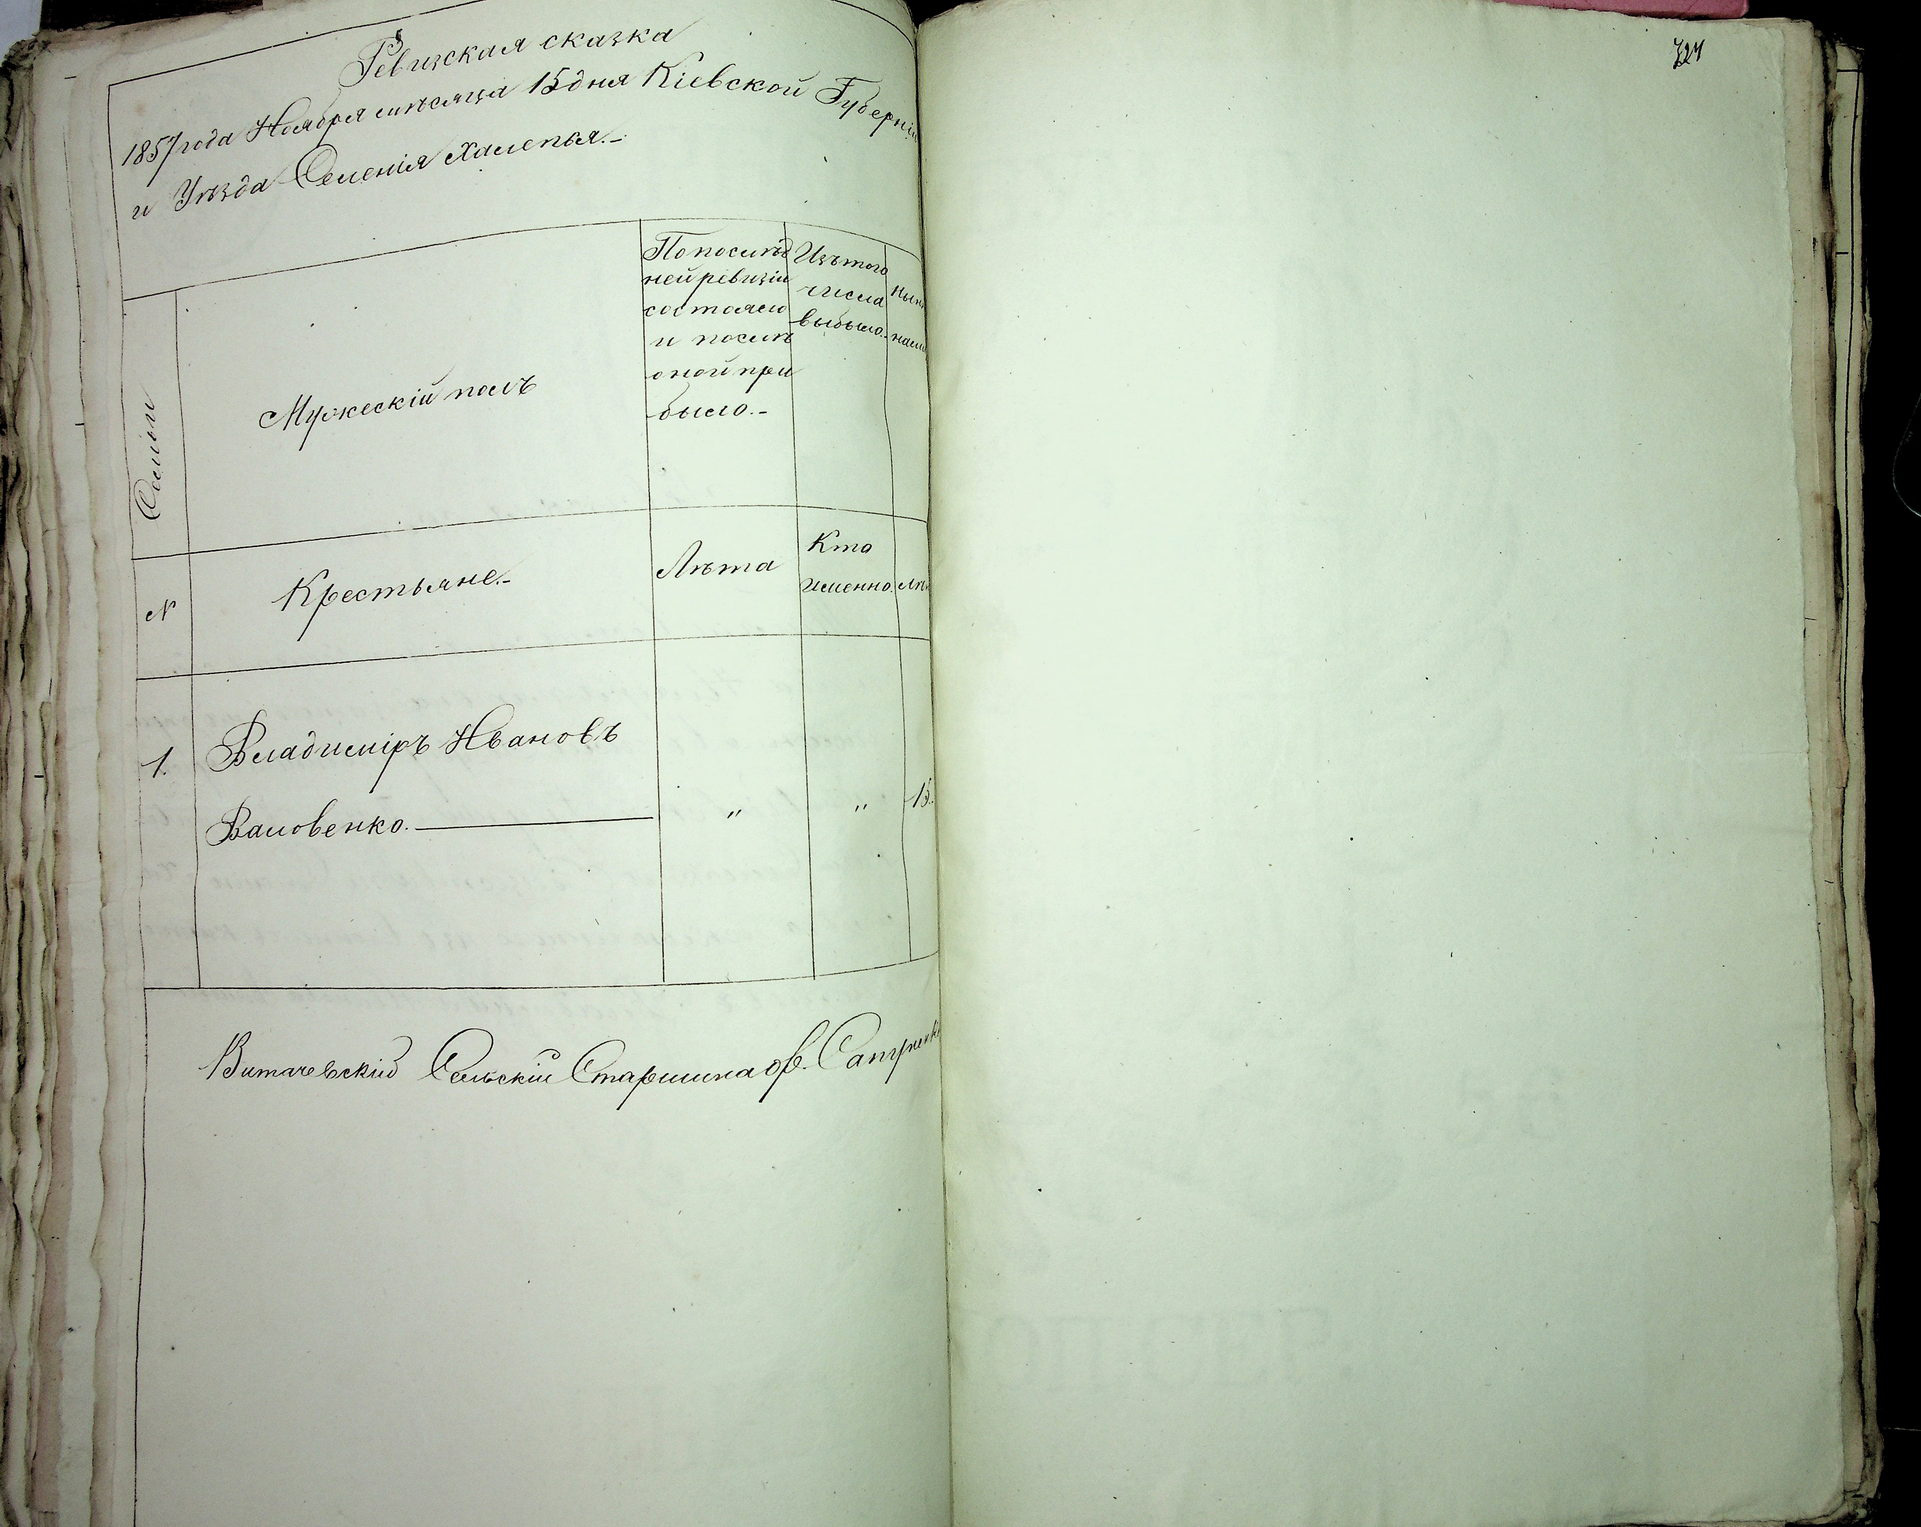 Ревизская сказка
1857 года Ноября мѣсяца 15 дня Кіевской Губерніи
и Уѣзда Селенія Халепья.-
Семьи
Мужескій полъ
По послѣд
ней ревизіи
состояло
и послѣ
оной при
было.-
Изъ того
числа
выбыло.-
Нын
нали
N
Крестьяне.-
Лѣта
Кто
именно.
Лѣ
1.
Владиміръ Ивановъ
Валовенко.
"
"
15.
Витачевскій Сельскій Старшина